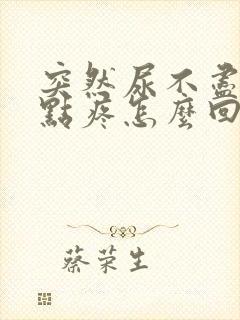 突然尿不盡
點疼怎麼回
蔡荣生